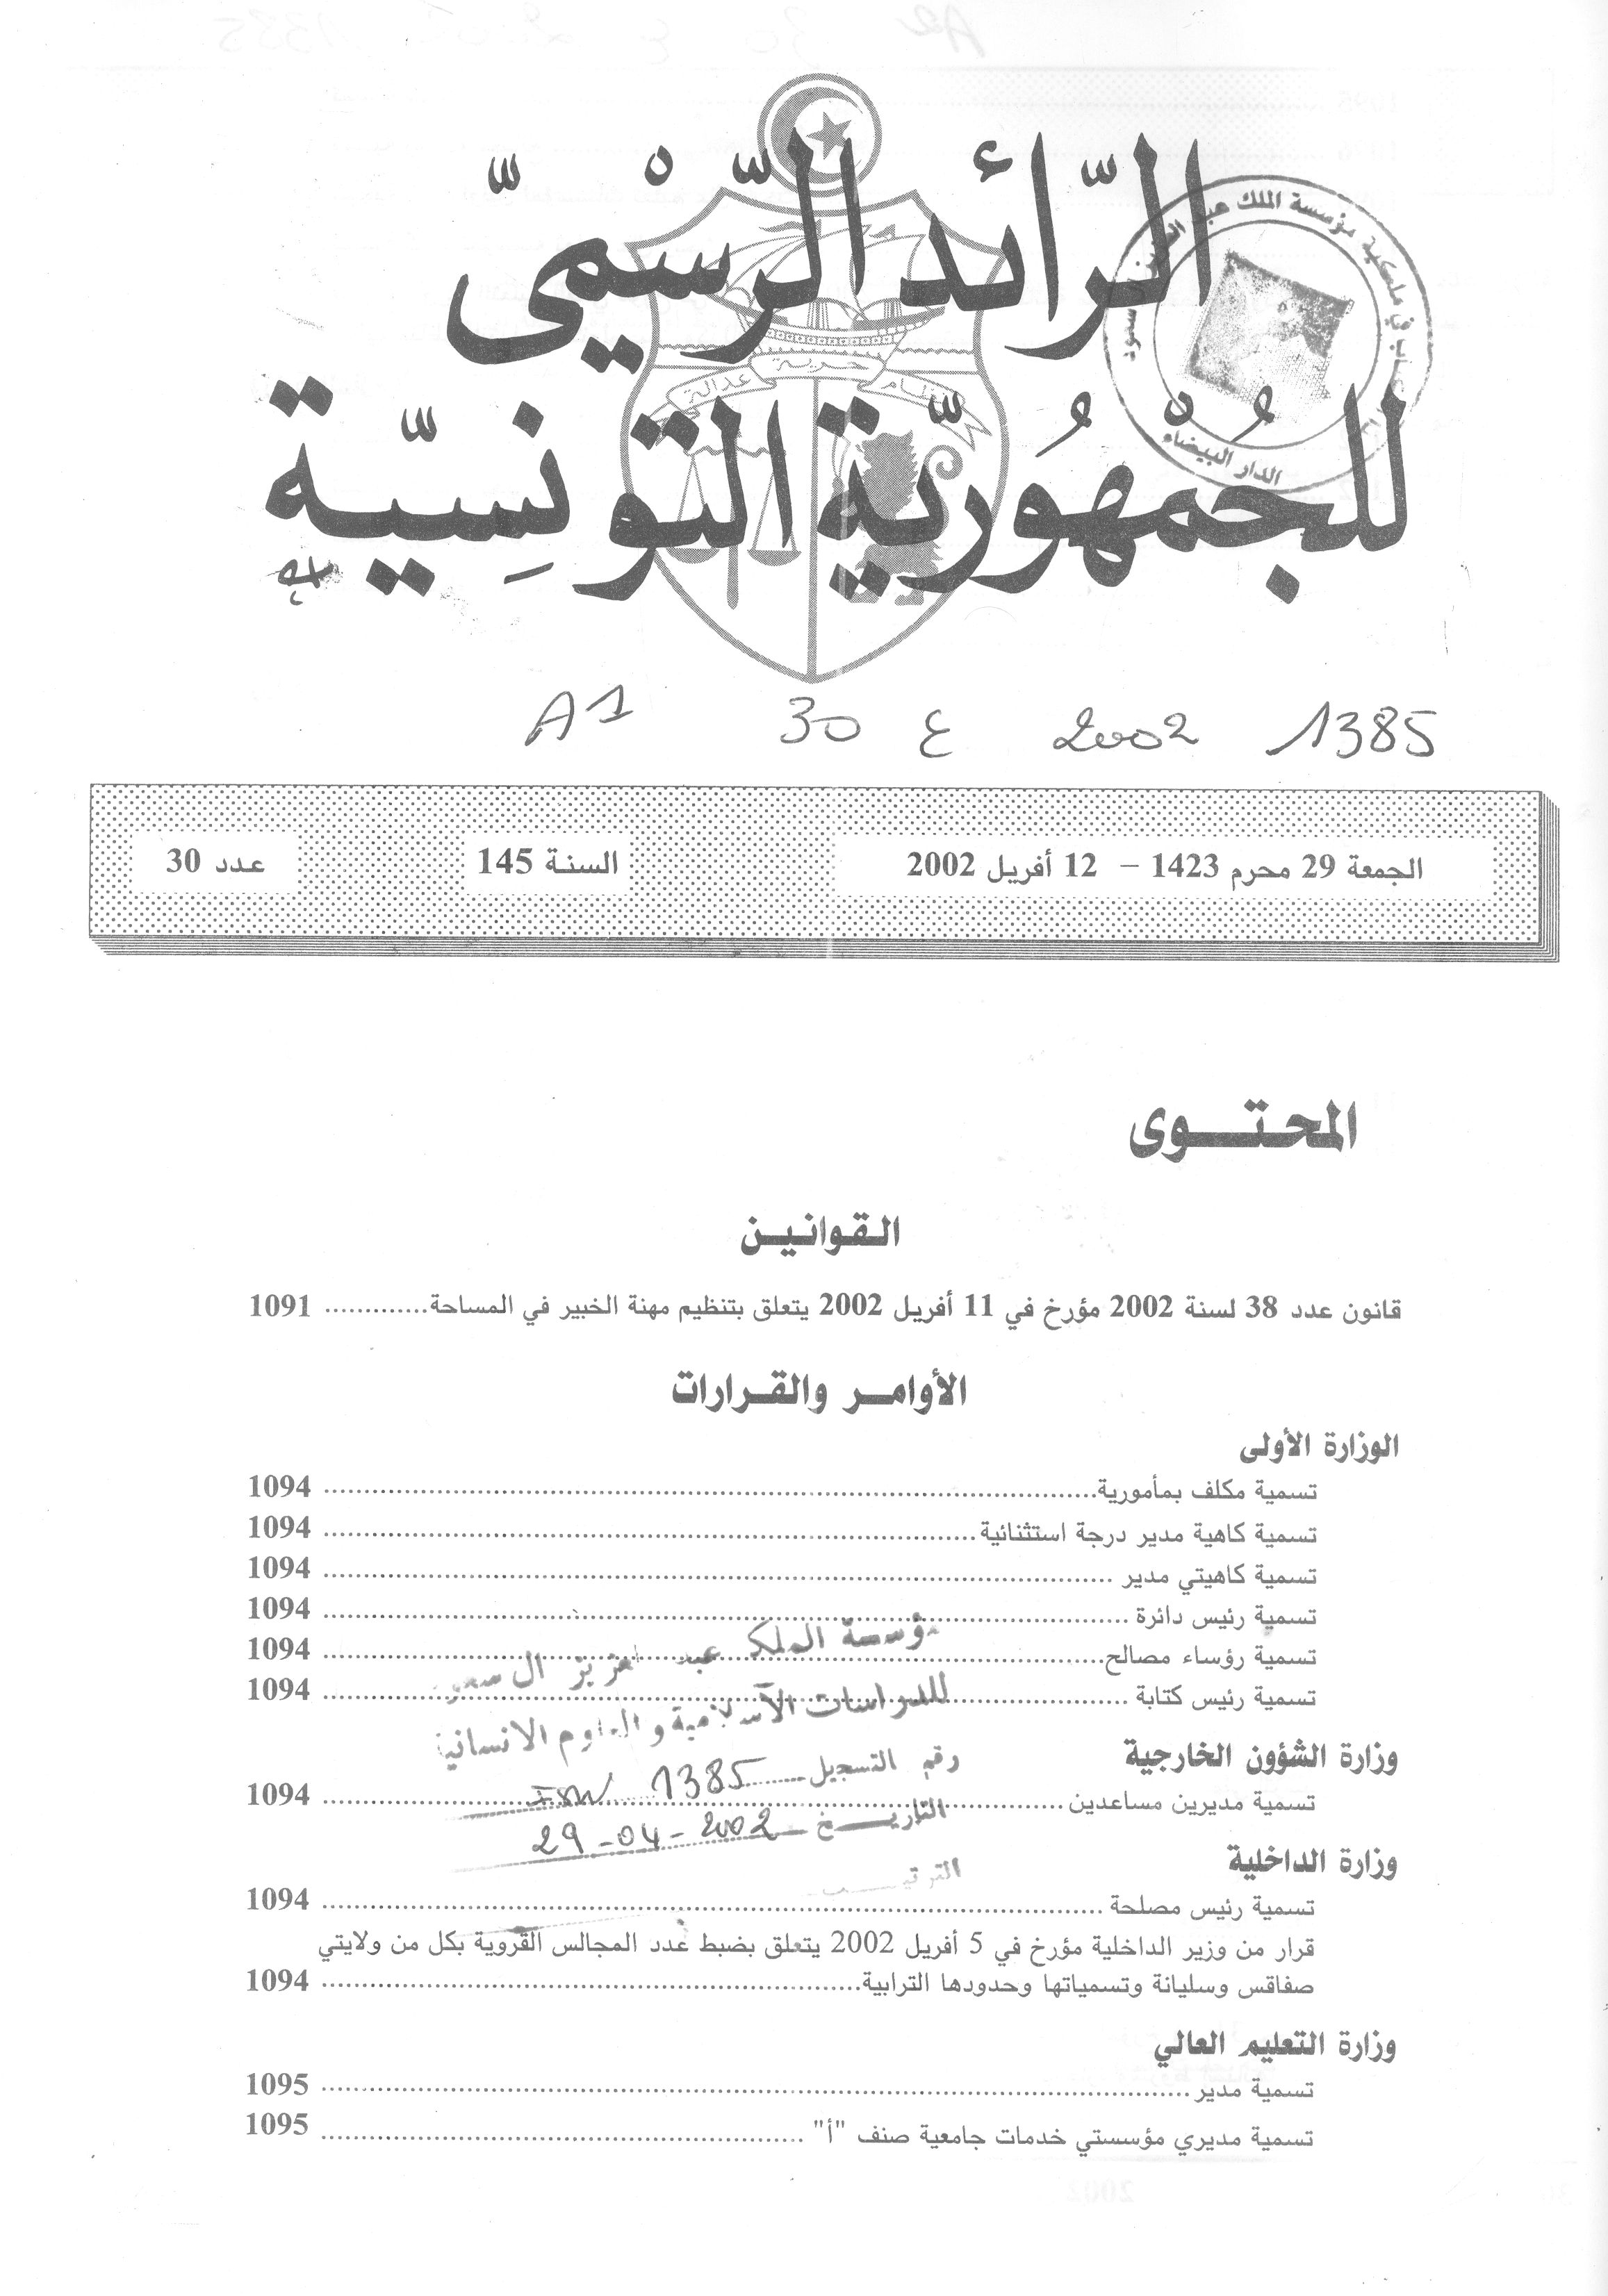 الرّائد الرّسْمِيّ
للجُمْهُوريّة التونِسيّة
نظام حرية عدالة
مؤسسة الملك عبد
الدار البيضاء
1385 2002 ع 30 A1
الجمعة 29 محرم 1423 – 12 أفريل 2002
السنة 145
عدد 30
المحتوى
القوانين
قانون عدد 38 لسنة 2002 مؤرخ في 11 أفريل 2002 يتعلق بتنظيم مهنة الخبير في المساحة ............. 1091
الأوامر والقرارات
الوزارة الأولى
تسمية مكلف بمأمورية ............. 1094
تسمية كاهية مدير درجة استثنائية ............. 1094
تسمية كاهيتي مدير ............. 1094
تسمية رئيس دائرة ............. 1094
تسمية رؤساء مصالح ............. 1094
تسمية رئيس كتابة ............. 1094
مؤسسة الملك عبد العزيز ال سعود
للدراسات الآسلامية والعلوم الانسانية
رقم التسجيل 1385
التاريخ 29-04-2002
الترتيب
وزارة الشؤون الخارجية
تسمية مديرين مساعدين ............. 1094
وزارة الداخلية
تسمية رئيس مصلحة ............. 1094
قرار من وزير الداخلية مؤرخ في 5 أفريل 2002 يتعلق بضبط عدد المجالس القروية بكل من ولايتي
صفاقس وسليانة وتسمياتها وحدودها الترابية ............. 1094
وزارة التعليم العالي
تسمية مدير ............. 1095
تسمية مديري مؤسستي خدمات جامعية صنف "أ" ............. 1095